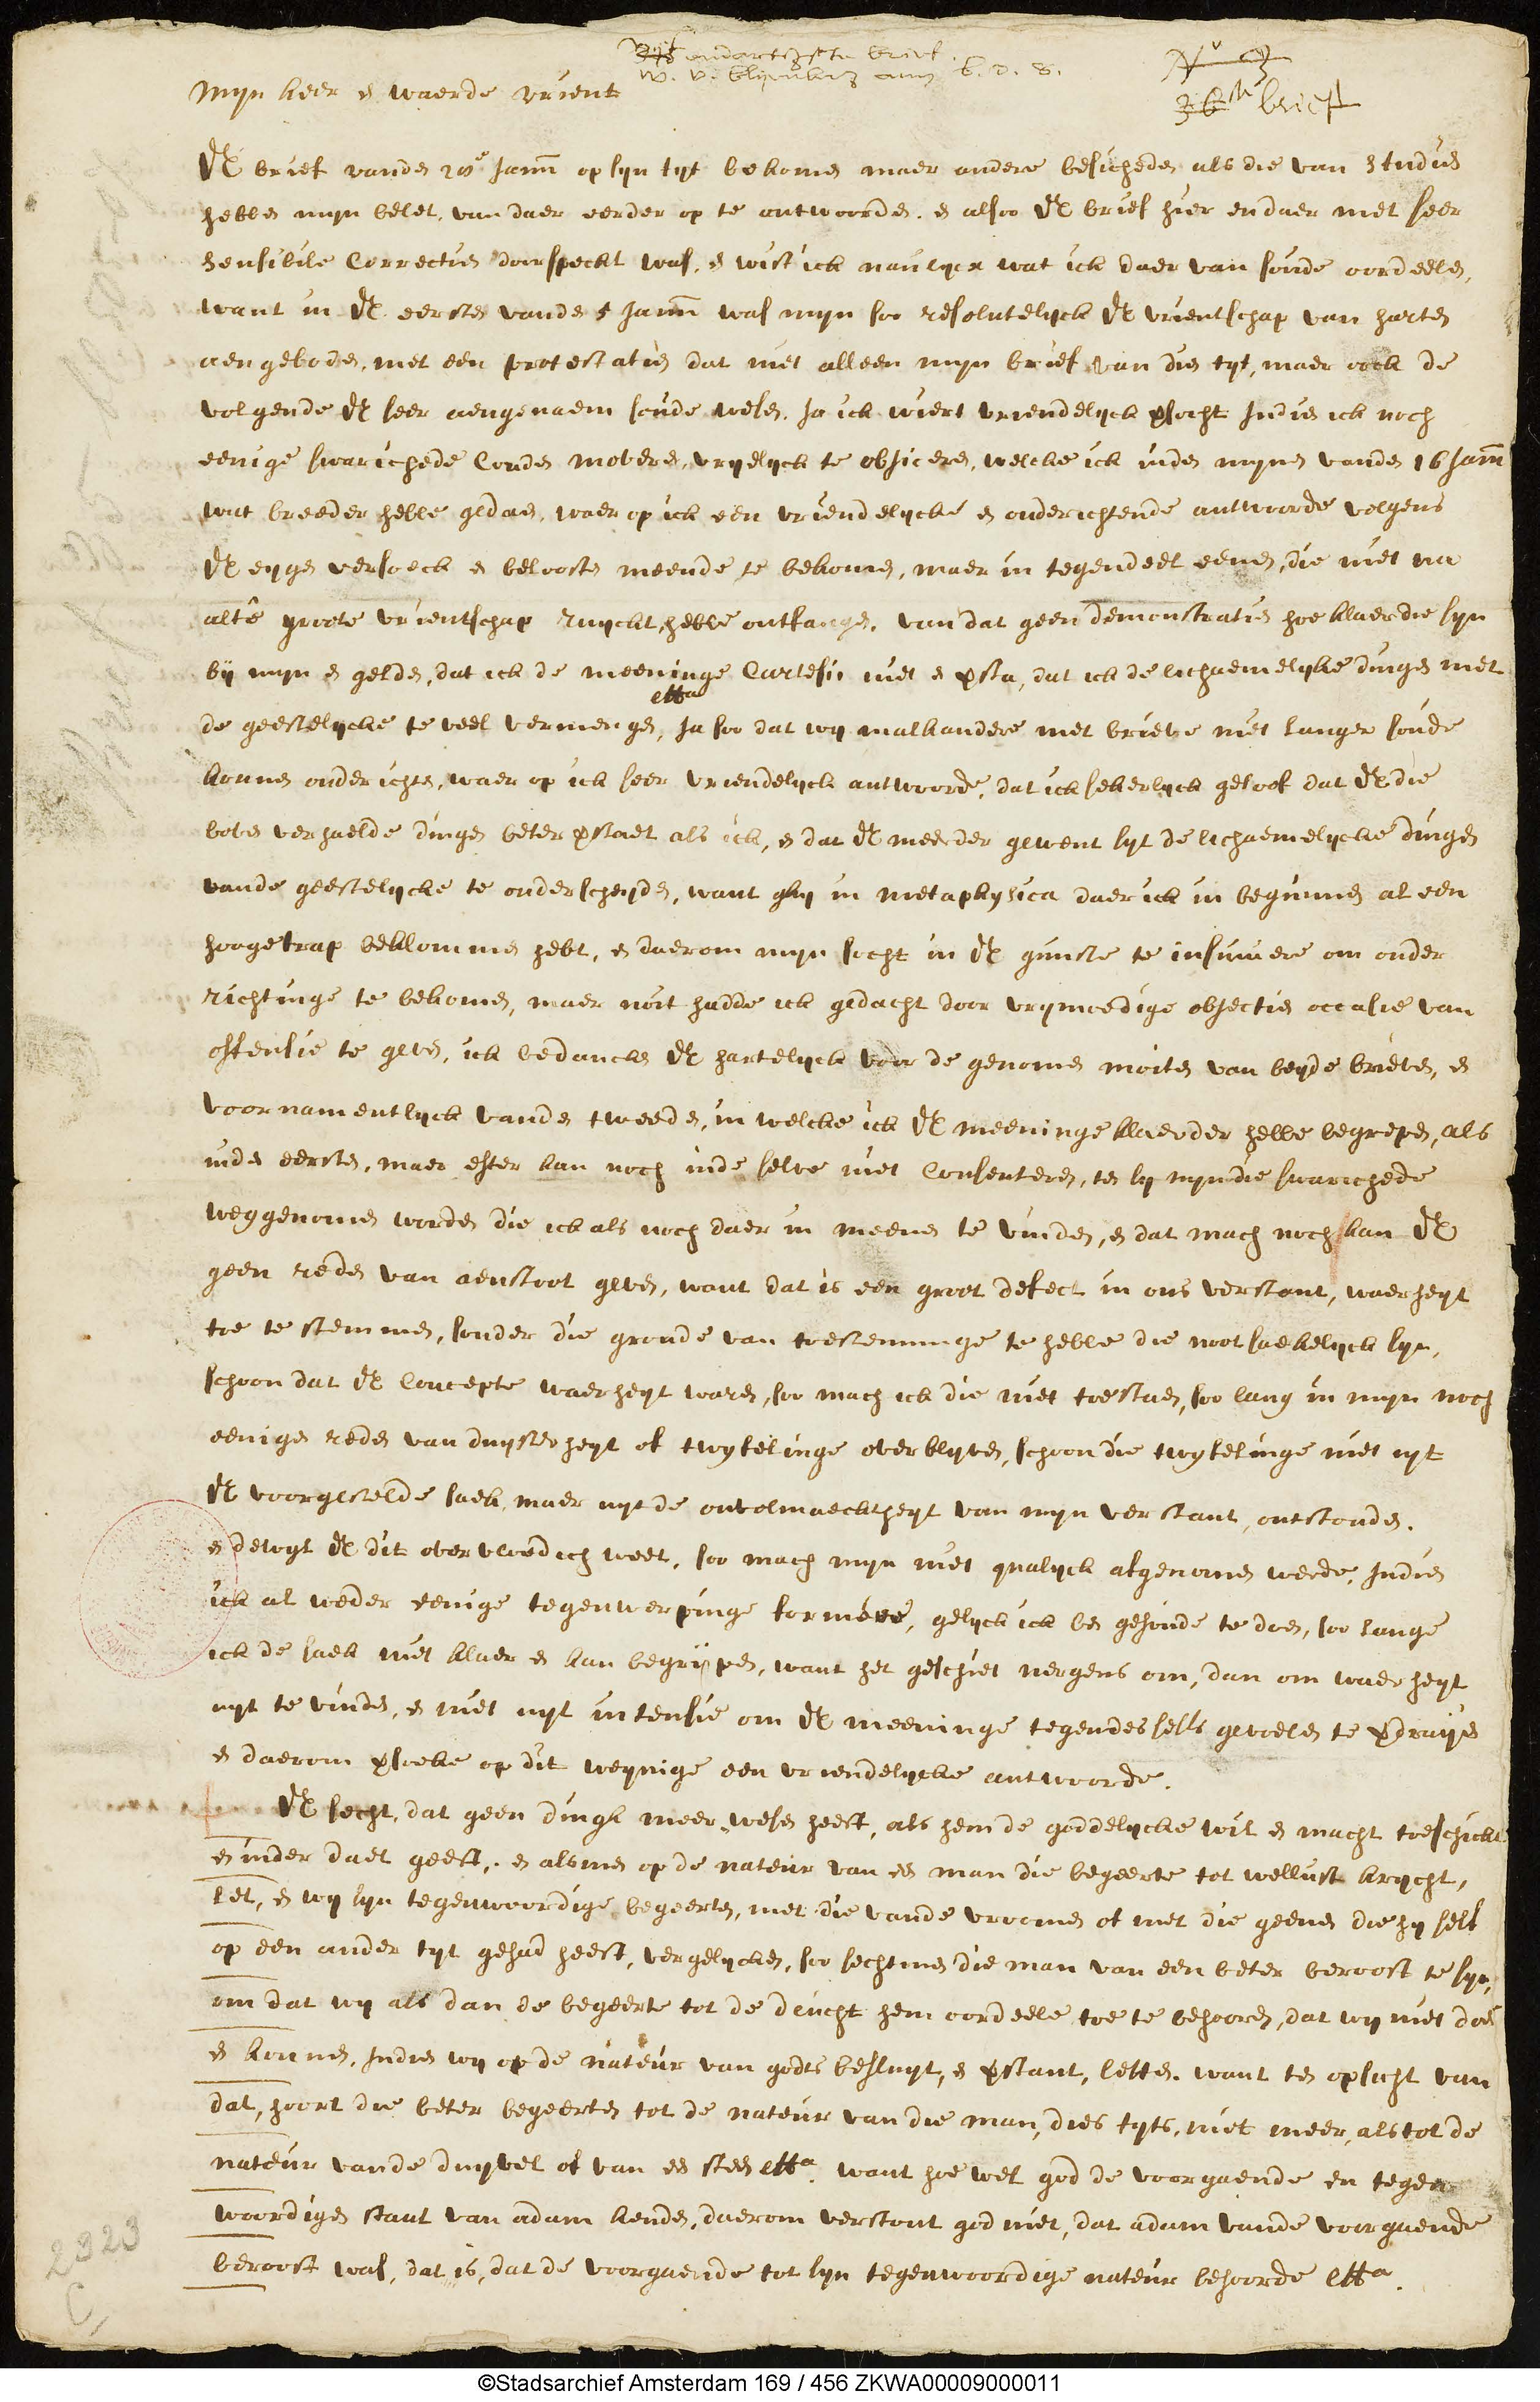 Vijf endartichste brief.
W. v. Blijenberg aan B. D. S.
No 3
36ste brief
Mijn heer en waerde vrient
UE brief vanden 28e Janu op sijn tijt bekomen maer andere besichheden als die van studien
hebben mijn belet, van daer eerder op te antwoorden. en alsoo UE brief hier en daer met seer
sensibile Correctien doorspeckt was, en wist ick naulijcx wat ick daer van soude oordeelen,
want in UE eersten vanden 5 Janu was mijn soo resolutelijck UE vrientschap van harten
aengeboden, met een protestatien dat niet alleen mijn brief van dien tijt, maer oock de
volgende UE seer aengenaem soude wesen. Ja ick wiert vriendelijck versocht Indien ick noch
eenige swarichede konden moveren, vrijelijck te objiceren, welcke ick inden mijnen vanden 16 Janu
wat breeder hebbe gedaen, waer op ick een vriendelijcke en onderichtende antwoorde volgens
UE eygen versoeck en belooften meende te bekomen, maer in tegendeel eenen, die niet na
alte groote vrientschap ruyckt, hebbe ontfangen. van dat geen demonstratien hoe klaer die sijn
bij mijn en gelden, dat ick de meeninge Cartesii niet en versta, dat ick de lichaemelyke dingen met
etta
de geestelijcke te veel vermengen, Ja soo dat wij malkandere met brieve niet langer soude
konnen onderichten, waer op ick seer vriendelijck antwoorde, dat ick sekerlijck geloof dat UE die
boven verhaelde dingen beter verstaet als ick, en dat UE meerder gewent sijt de lichaemelijcke dingen
vande geestelijcke te onderscheyden, want ghij in metaphysica daer ick in beginnen al een
hooge trap beklommen hebt, en daerom mijn socht in UE gunste te insinuere om onder
richtinge te bekomen, maer noit hadde ick gedacht door vrijmoedige objectien occasie van
offensie te geven, ick bedancke UE hartelijck voor de genomen moiten van beyde brieven, en
voornamentlijck vanden tweeden, in welcke ick UE meeninge klaerder hebbe begrepen, als
inden eersten, maer efter kan noch inde selve niet Consenteren, ten sij mijn die swarichede
weggenomen worden die ick als noch daer in meenen te vinden, en dat mach noch kan UE
geen reden van aenstoot geven, want dat is een groot defect in ons verstant, waerheyt
toe te stemmen, sonder die gronde van toesteminge te hebbe die nootsaekelijck sijn,
schoon dat UE Concepte waerheyt waren, soo mach ick die niet toestaen, soo lang in mijn noch
eenigen reden van duysterheyt of twyfelinge overblijven, schoon die twyfelinge niet uyt
UE voorgestelde saek, maer uyt de onvolmaecktheyt van mijn verstant, ontstonden.
en dewyl UE dit overvloedich weet, soo mach mijn niet qualijck afgenomen werde, Indien
ick al weder eenige tegenwerpinge formere, gelijck ick ben gehoude te doen, soo lange
ick de saek niet klaer en kan begrijpen, want het geschiet nergens om, dan om waerheyt
uyt te vinden, en niet uyt intensie om UE meeninge tegen des selfs gevoelen te verdraijen
en daerom versoeke op dit weynige een vriendelijcke antwoorde.
UE secht, dat geen dingk meer wesen heeft, als hem de goddelijcke wil en macht toeschickt
en inder daet geeft, en alsmen op de nateur van een man die begeerte tot wellust krycht,
let, en wij sijn tegenwoordige begeerten, met die vande vroomen of met die geenen die hij self
op een ander tijt gehad heeft, vergelijcken, soo sechtmen die man van een beter berooft te sijn,
om dat wij als dan de begeerte tot de deucht hem oordeele toe te behooren, dat wij niet doen
en konnen, Indien wij op de nateur van godts besluyt, en verstant, letten. want ten opsicht van
dat, hoort die beter begeerten tot de nateur van die man, dies tijts, niet meer, als tot de
nateur vande duyvel of van een steen etta. want hoe wel god de voorgaende en tegen
woordigen staat van adam kenden, daerom verstont god niet, dat adam vande voorgaende
berooft was, dat is, dat de voorgaende tot sijn tegenwoordige nateur behoorde etta.
2323
C
©Stadsarchief Amsterdam 169 / 456 ZKWA00009000011